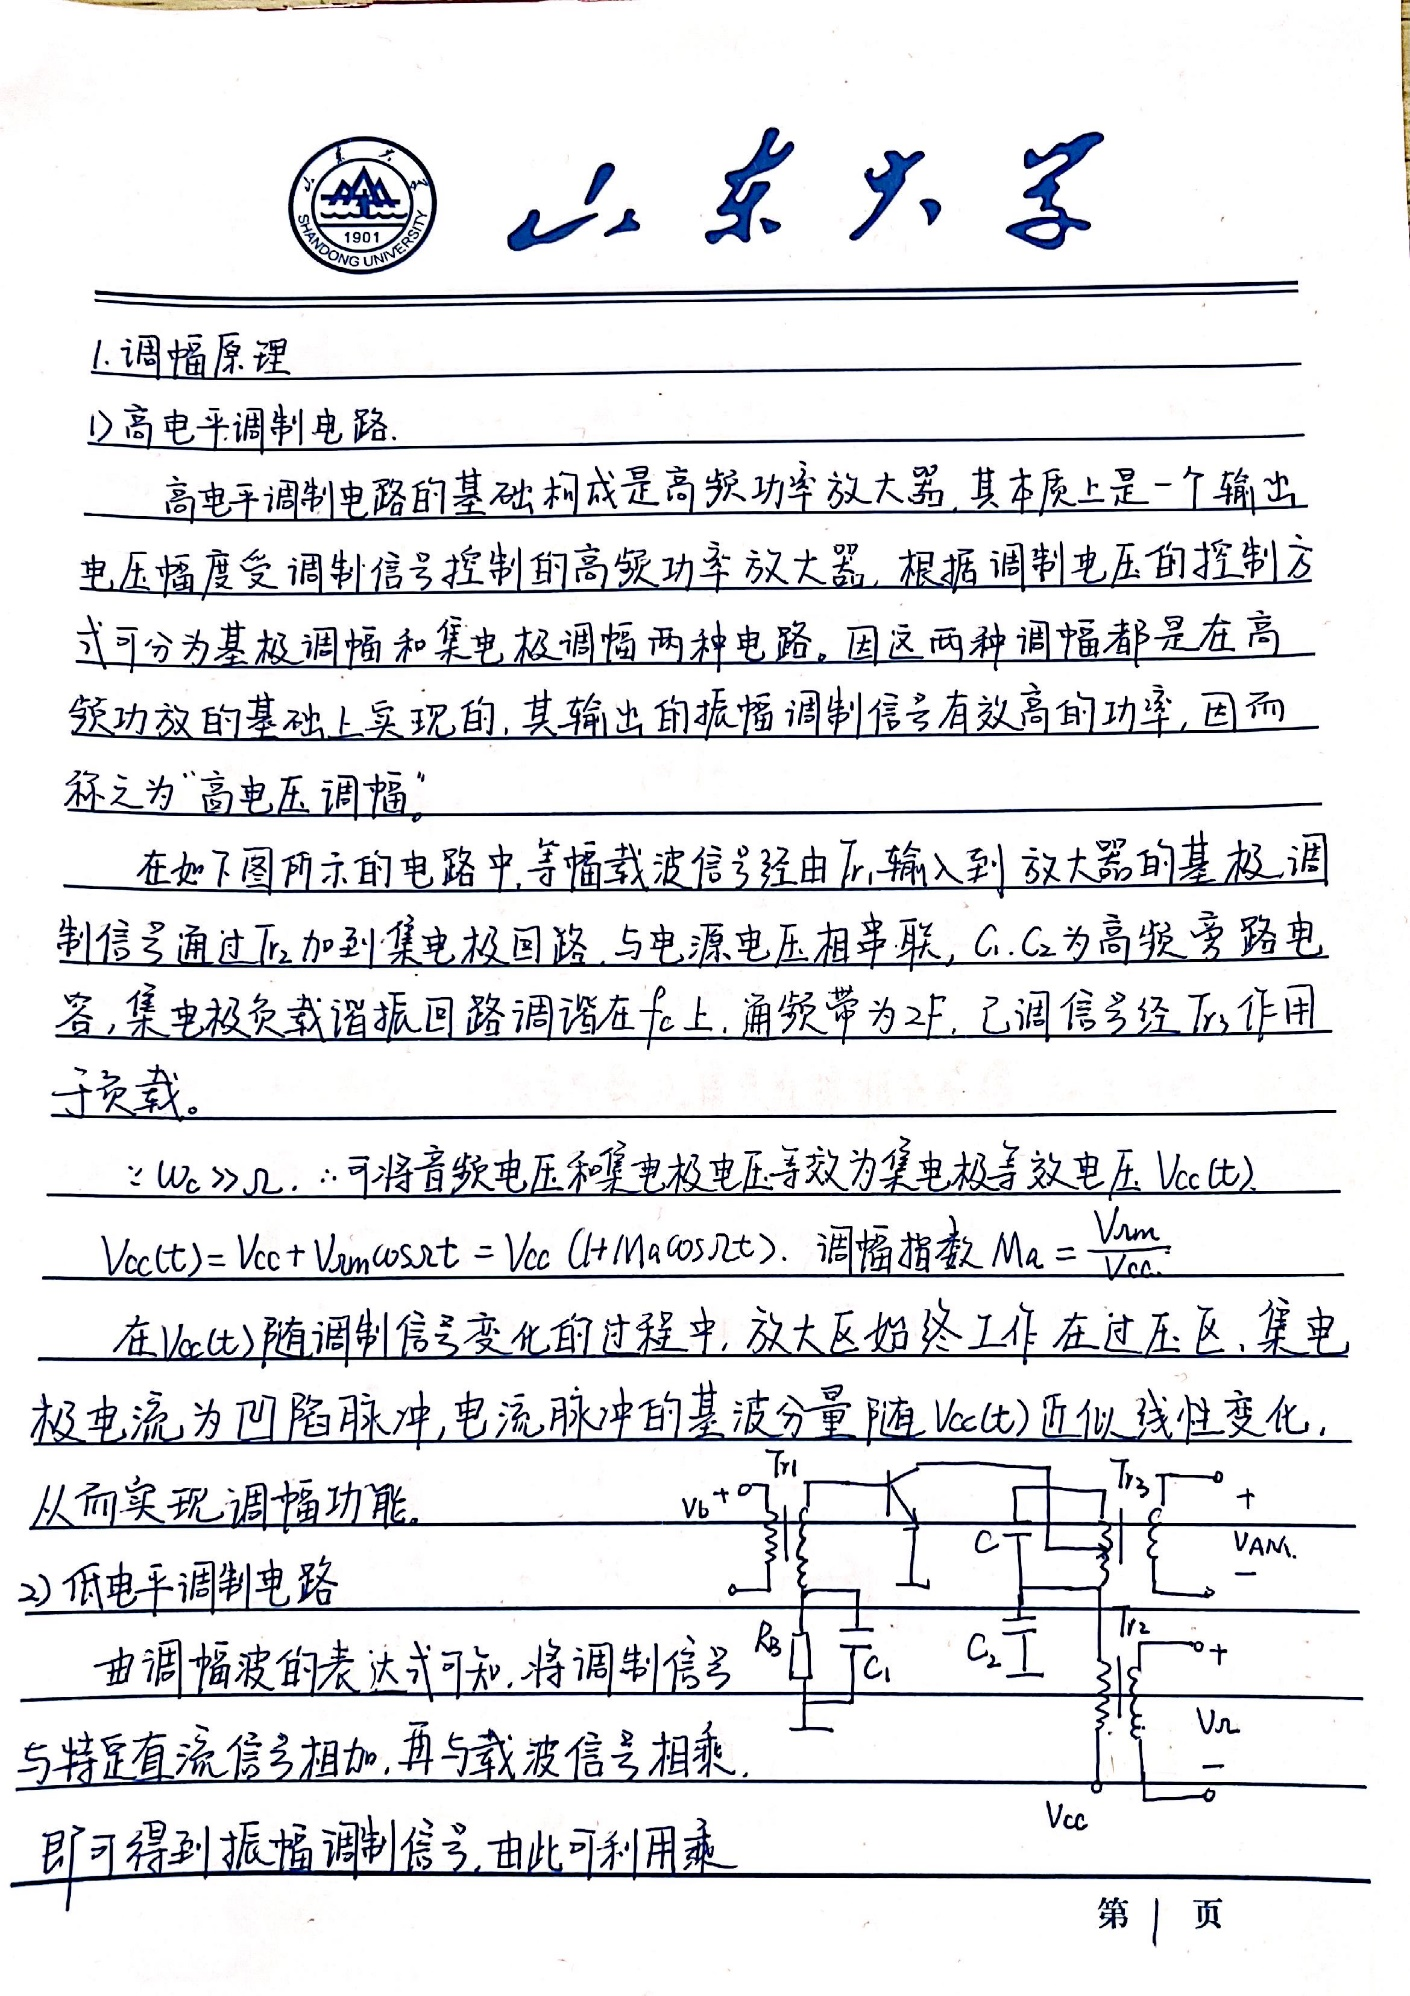 山东大学
SHANDONG UNIVERSITY
1901
山东大学
1.调幅原理
1)高电平调制电路.
高电平调制电路的基础构成是高频功率放大器,其本质上是一个输出
电压幅度受调制信号控制的高频功率放大器,根据调制电压的控制方
式可分为基极调幅和集电极调幅两种电路。因这两种调幅都是在高
频功放的基础上实现的,其输出的振幅调制信号有效高的功率,因而
称之为“高电压调幅”。
在如下图所示的电路中,等幅载波信号经由Tr1输入到放大器的基极,调
制信号通过Tr2加到集电极回路,与电源电压相串联,C1.C2为高频旁路电
容,集电极负载谐振回路调谐在fc上,通频带为2F,已调信号经Tr3作用
于负载。
∵ωc>>Ω.∴可将音频电压和集电极电压等效为集电极等效电压Vcc(t).
Vcc(t)=Vcc+VΩmcosΩt=Vcc(1+MacosΩt). 调幅指数Ma=VΩm/Vcc.
在Vcc(t)随调制信号变化的过程中,放大区始终工作在过压区,集电
极电流为凹陷脉冲,电流脉冲的基波分量随Vcc(t)近似线性变化,
从而实现调幅功能。
Tr1
Vb +
C
Tr3
+
VAM.
−
RB
C1
C2
Tr2
+
VΩ
−
Vcc
2)低电平调制电路
由调幅波的表达式可知,将调制信号
与特定直流信号相加,再与载波信号相乘,
即可得到振幅调制信号,由此可利用乘
第1页